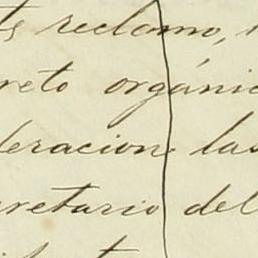 ts reclamo,
reto orgánic
deracion las
cretario del